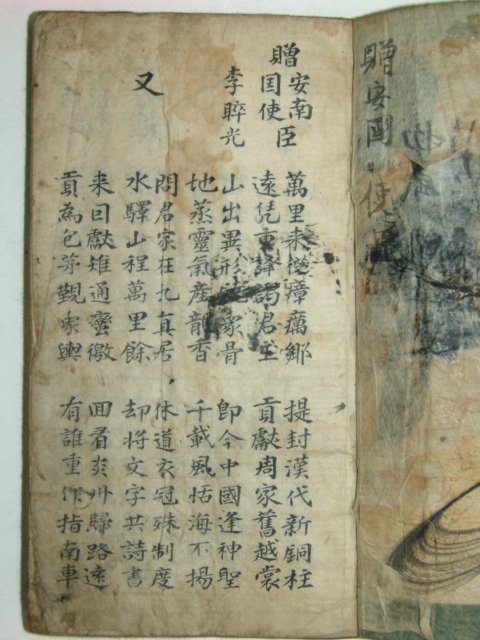 贈安南国使臣
李睟光
萬里來從瘴癘鄉
遠凭重譯謁君王
提封漢代新銅柱
貢獻周家舊越裳
山出異形饒象骨
地蒸靈氣産龍香
即今中國逢神聖
千載風恬海不揚
又
問君家在九真居
水驛山程萬里餘
休道衣冠殊制度
却將文字共詩書
來因獻雉通蠻徼
貢為包茅覲象輿
回看炎州歸路遠
有誰重作指南車
贈安国使